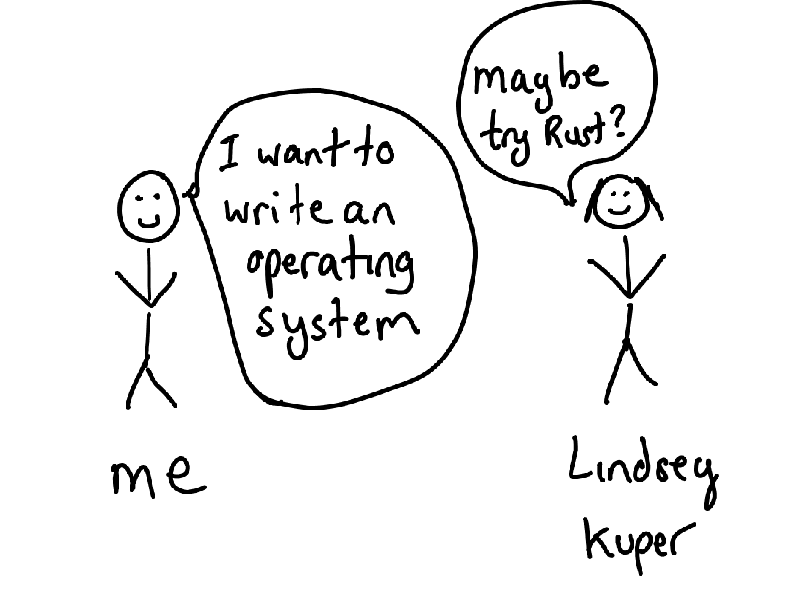 I want to
write an
operating
system
maybe
try Rust?
me
Lindsey
Kuper